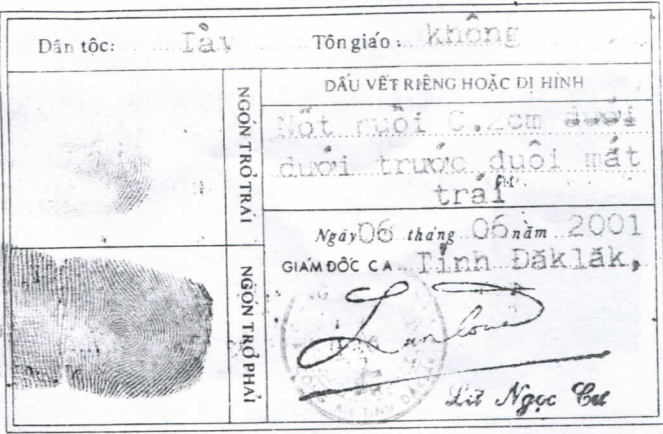 Dân tộc: Tày Tôn giáo: không
NGÓN TRỎ TRÁI
DẤU VẾT RIÊNG HOẶC DỊ HÌNH
Nốt ruồi C.2cm dưới
dưới trước đuôi mắt
trái
Ngày 06 tháng 06 năm 2001
GIÁM ĐỐC CA Tỉnh Đăklăk,
NGÓN TRỎ PHẢI
TỈNH